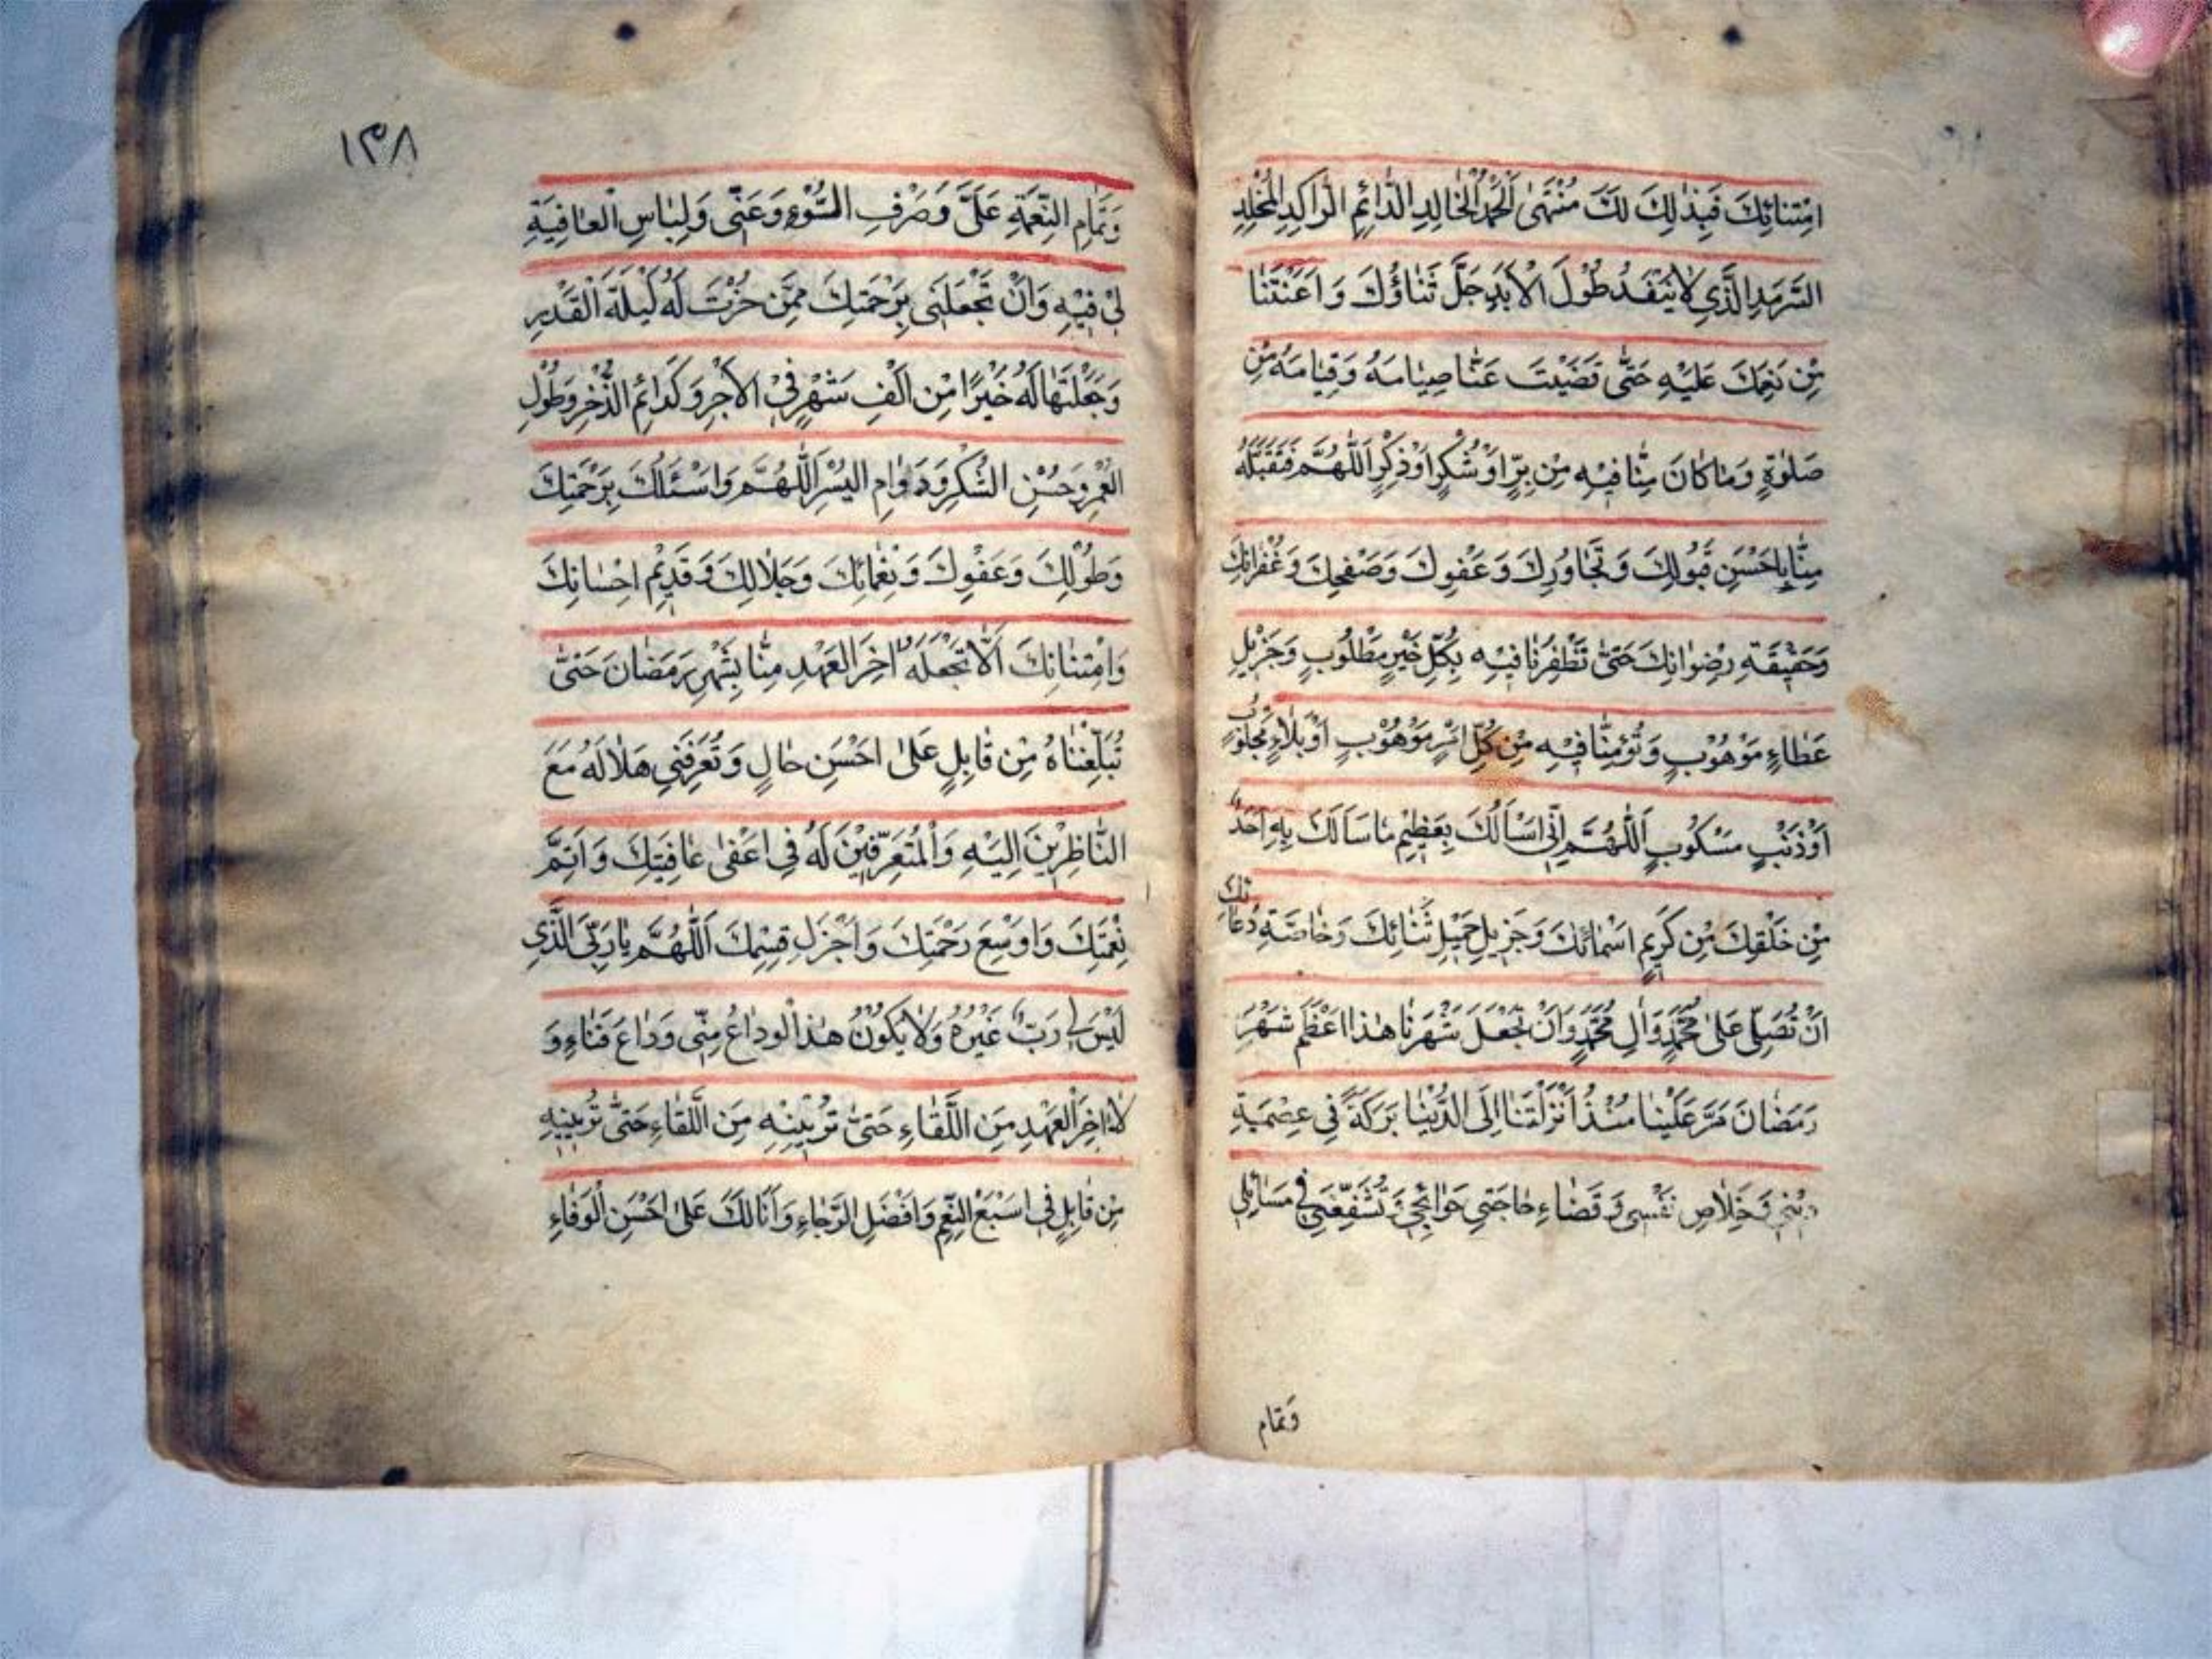 امْتِنانِكَ فَبِذٰلِكَ لَكَ مُنْتَهَى الْحَمْدُ الْخالِدِ الدّائِمِ الرّاكِدِ الْمُخَلَّدِ
السَّرْمَدِ الَّذِي لا يَنْفَدُ طُولَ الْاَبَدِ جَلَّ ثَناؤُكَ وَ اَعَنْتَنا
مِنْ نِعَمِكَ عَلَيْهِ حَتّى قَضَيْتَ عَنّا صِيامَهُ وَ قِيامَهُ مِنْ
صَلٰوةٍ وَ ما كانَ مِنّا فِيْهِ مِنْ بِرٍّ اَوْ شُكْرٍ اَوْ ذِكْرٍ اَللّٰهُمَّ فَتَقَبَّلْهُ
مِنّا بِاَحْسَنِ قَبُولِكَ وَ تَجاوُزِكَ وَ عَفْوِكَ وَ صَفْحِكَ وَ غُفْرانِكَ
وَ حَقِيْقَةِ رِضْوانِكَ حَتّى تَظْفَرَنا فِيْهِ بِكُلِّ خَيْرٍ مَطْلُوبٍ وَ جَزِيْلِ
عَطاءٍ مَوْهُوْبٍ وَ تُؤْمِنّا فِيْهِ مِنْ كُلِّ مَوْهُوْبٍ اَوْ بَلاءٍ مَجْلُوبٍ
اَوْ ذَنْبٍ مَسْكُوبٍ اَللّٰهُمَّ اِنّى اَسْاَلُكَ بِعَظِيْمِ ما سَاَلَكَ بِهِ اَحَدٌ
مِنْ خَلْقِكَ مِنْ كَرِيْمِ اَسْمائِكَ وَ جَزِيلِ جَمِيْلِ ثَنائِكَ وَ خاصَّةِ دُعائِكَ
اَنْ تُصَلِّيَ عَلى مُحَمَّدٍ وَ اٰلِ مُحَمَّدٍ وَ اَنْ تَجْعَلَ شَهْرَنا هٰذا اَعْظَمَ شَهْرِ
رَمَضانَ مَرَّ عَلَيْنا مُنْذُ اَنْزَلْتَنا اِلَى الدُّنْيا بَرَكَةً فِي عِصْمَةِ
دِيْنِي وَ خَلاصِ نَفْسِي وَ قَضاءِ حاجَتِي حَوائِجِي وَ تُشَفِّعَنِي فِي مَسائِلِي
وَ تَمام
١٣٨
وَ تَمامِ النِّعْمَةِ عَلَيَّ وَ صَرْفِ السُّوْءِ وَ عَنّي وَ لِباسِ الْعافِيَةِ
لِيْ فِيْهِ وَ اَنْ تَجْعَلَنِي بِرَحْمَتِكَ مِمَّنْ حُزْتَ لَهُ لَيْلَةَ الْقَدْرِ
وَ جَعَلْتَها لَهُ خَيْرًا مِنْ اَلْفِ شَهْرٍ فِيْ الْاَجْرِ وَ كَدائِمِ الذُّخْرِ وَ طُوْلِ
الْعُمْرِ وَ حُسْنِ الشُّكْرِ وَ دَوامِ الْيُسْرِ اَللّٰهُمَّ وَ اَسْئَلُكَ بِرَحْمَتِكَ
وَ طَوْلِكَ وَ عَفْوِكَ وَ نَعْمائِكَ وَ جَلالِكَ وَ قَدِيْمِ اِحْسانِكَ
وَ امْتِنانِكَ اَلّا تَجْعَلَهُ اٰخِرَ الْعَهْدِ مِنّا بِشَهْرِ رَمَضانَ حَتّى
تُبَلِّغْناهُ مِنْ قابِلٍ عَلى اَحْسَنِ حالٍ وَ تُعَرِّفَنِي هِلالَهُ مَعَ
النّاظِرِيْنَ اِلَيْهِ وَ الْمُتَعَرِّفِيْنَ لَهُ فِي اَعْفى عافِيَتِكَ وَ اَتَمِّ
نِعْمَتِكَ وَ اَوْسَعِ رَحْمَتِكَ وَ اَجْزَلِ قِسْمِكَ اَللّٰهُمَّ يا رَبِّيَ الَّذِي
لَيْسَ لِي رَبٌّ غَيْرُهُ وَ لا يَكُوْنُ هٰذَا الْوَداعُ مِنّي وَداعَ فَناءٍ وَ
لا اٰخِرَ الْعَهْدِ مِنَ اللِّقاءِ حَتّى تُرِيْنِيْهِ مِنَ اللِّقاءِ حَتّى تُرِيْنِيْهِ
مِنْ قابِلٍ فِي اَسْبَغِ النِّعَمِ وَ اَفْضَلِ الرَّجاءِ وَ اَنَا لَكَ عَلى اَحْسَنِ الْوَفاءِ